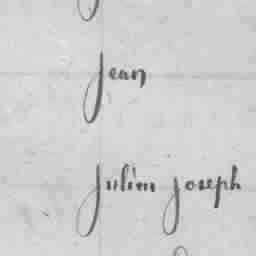 Jean
Julien Joseph